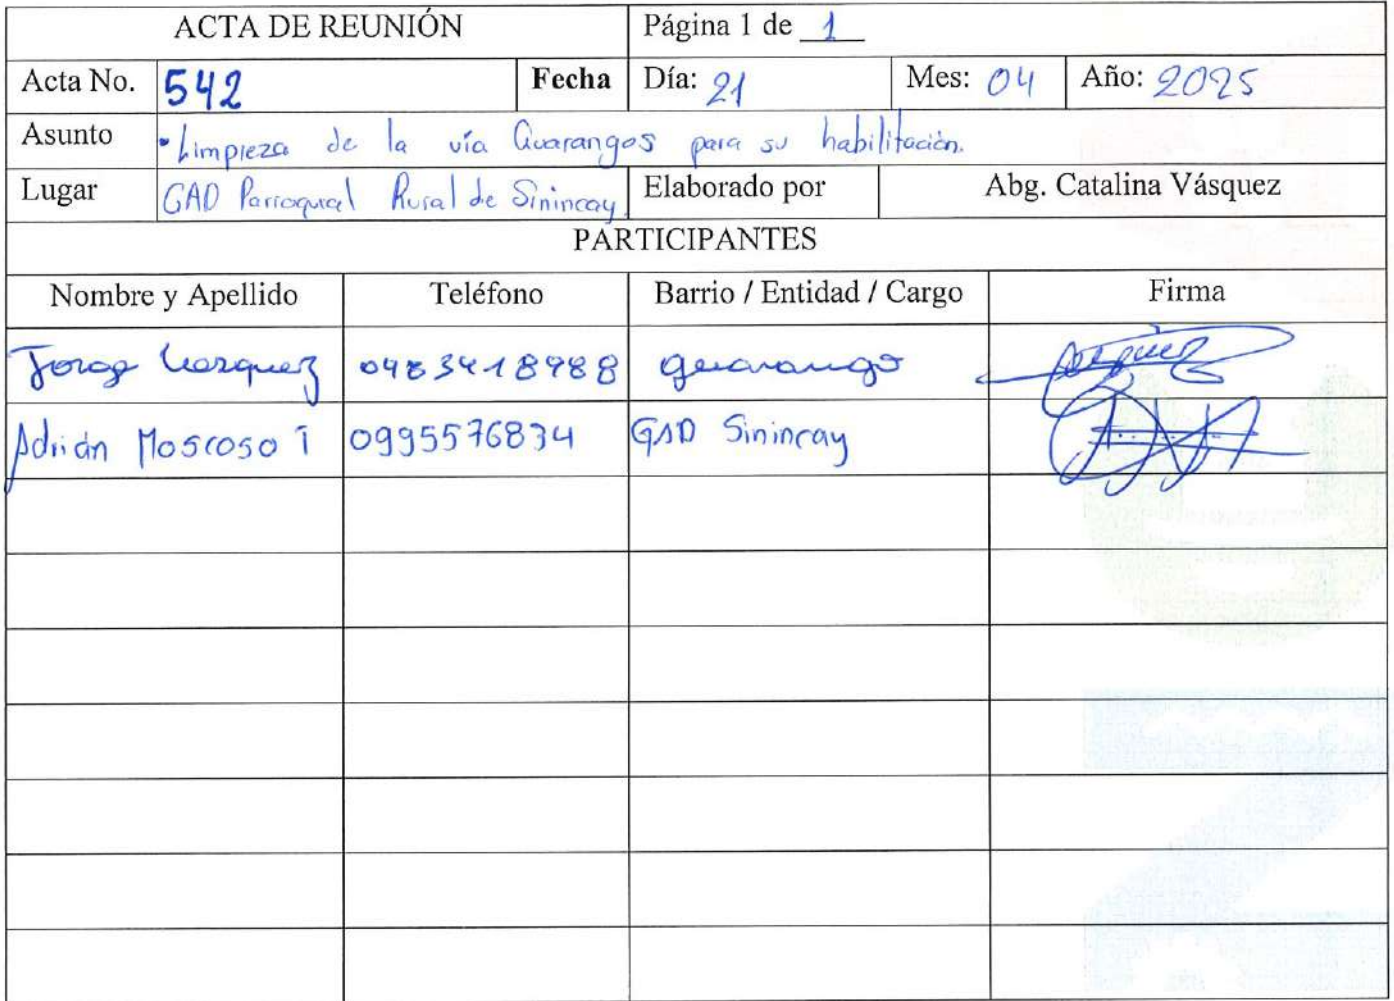 ACTA DE REUNIÓN Página 1 de 1
Acta No. 542 Fecha Día: 21 Mes: 04 Año: 2025
Asunto • Limpieza de la vía Guarangos para su habilitación.
Lugar GAD Parroquial Rural de Sinincay. Elaborado por Abg. Catalina Vásquez
PARTICIPANTES
Nombre y Apellido Teléfono Barrio / Entidad / Cargo Firma
Jorge Vasquez guarango
Adrián Moscoso T 0995576834 GAD Sinincay